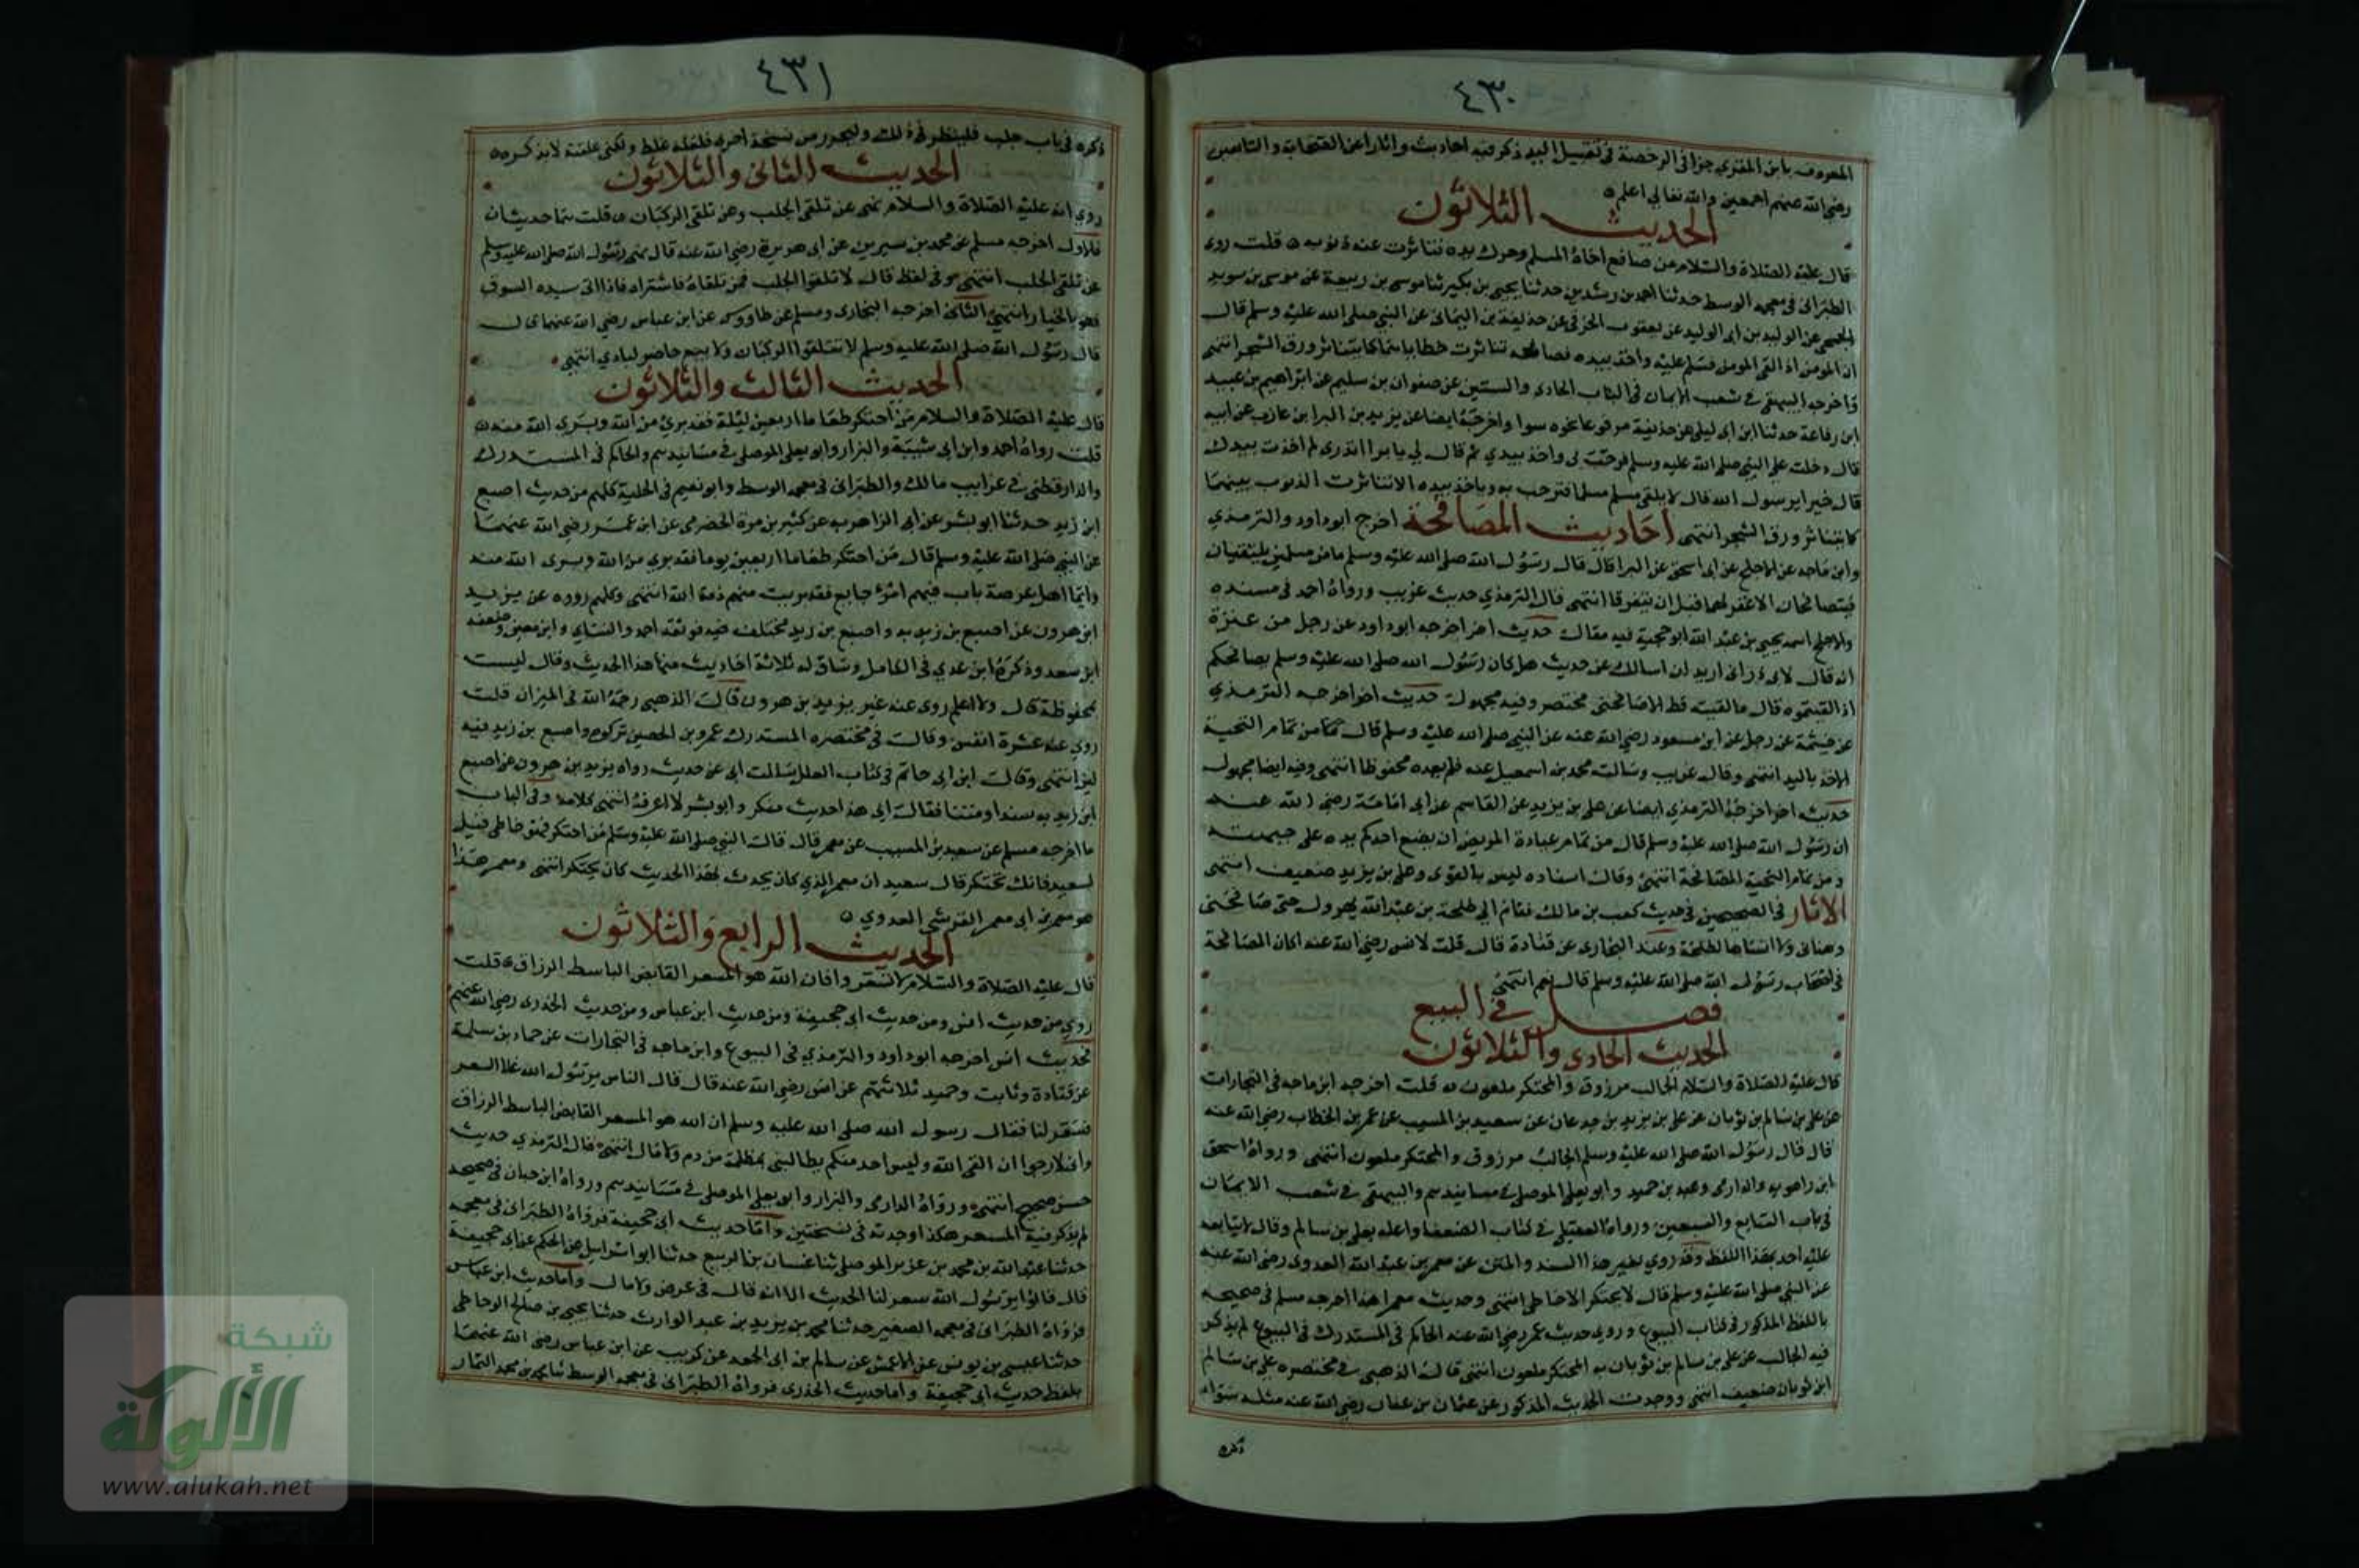 ٤٣٠
المعروف بابن المقري جزا في الرخصة في تقبيل اليد ذكر فيه احاديث واثارا عن الصحابة والتابعين
رضي الله عنهم اجمعين والله تعالى اعلم
الحديث الثلاثون
قال عليه الصلاة والسلام من صافح اخاه المسلم وحرك يده تناثرت عنه ذنوبه قلت روى
الطبراني في معجمه الوسط حدثنا احمد بن رشدين حدثنا يحيى بن بكير ثنا موسى بن ربيعة عن موسى بن سويد
الجمحي عن الوليد بن ابي الوليد عن يعقوب الحرقي عن حذيفة بن اليمان عن النبي صلى الله عليه وسلم قال
ان المومن اذا لقى المومن فسلم عليه واخذ بيده فصافحه تناثرت خطاياهما كما يتناثر ورق الشجر انتهى
واخرجه البيهقي في شعب الايمان في الباب الحادى والستين عن صفوان بن سليم عن ابراهيم بن عبيد
ابن رفاعة حدثنا ابن ابي ليلى عن حذيفة مرفوعا نحوه سوا واخرجه ايضا عن يزيد بن البرا بن عازب عن ابيه
قال دخلت على النبي صلى الله عليه وسلم فرحب بي واخذ بيدي ثم قال لي يا برا اتدرى لم اخذت بيدك
قال خيرا يرسول الله قال لا يلقى مسلم مسلما فترحب به وياخذ بيده الا تناثرت الذنوب بينهما
كما يتناثر ورق الشجر انتهى احاديث المصافحة اخرج ابوداود والترمذي
وابن ماجه عن الاجلح عن ابي اسحق عن البرا قال قال رسول الله صلى الله عليه وسلم ما من مسلمين يلتقيان
فيتصافحان الا غفر لهما قبل ان يتفرقا انتهى قال الترمذي حديث غريب ورواه احمد في مسنده
والاجلح اسمه يحيى بن عبد الله ابو حجية فيه مقال حديث اخر اخرجه ابوداود عن رجل من عنزة
انه قال لابى ذر انى اريد ان اسالك عن حديث هل كان رسول الله صلى الله عليه وسلم يصافحكم
اذا لقيتموه قال ما لقيته قط الا صافحني مختصر وفيه مجهول حديث اخر اخرجه الترمذي
عن خيثمة عن رجل عن ابن مسعود رضي الله عنه عن النبي صلى الله عليه وسلم قال من تمام التحية
الاخذ باليد انتهى وقال غريب وسالت محمد بن اسمعيل عنه فلم يعده محفوظا انتهى وفيه ايضا مجهول
حديث اخر اخرجه الترمذي ايضا عن على بن يزيد عن القاسم عن ابي امامة رضي الله عنه
ان رسول الله صلى الله عليه وسلم قال من تمام عيادة المريض ان يضع احدكم يده على جبهته
ومن تمام التحية المصافحة انتهى وقال اسناده ليس بالقوى وعلى بن يزيد ضعيف انتهى
الاثار في الصحيحين في حديث كعب بن مالك فقام الي طلحة بن عبد الله يهرول حتى صافحني
وهناني ولا انساها لطلحة وعند البخارى عن قتادة قال قلت لانس رضي الله عنه اكان المصافحة
في اصحاب رسول الله صلى الله عليه وسلم قال نعم انتهى
فصل في البيع
الحديث الحادى والثلاثون
قال عليه الصلاة والسلام الجالب مرزوق والمحتكر ملعون قلت اخرجه ابن ماجه في التجارات
عن على بن سالم بن ثوبان عن على بن يزيد بن جدعان عن سعيد بن المسيب عن عمر بن الخطاب رضي الله عنه
قال قال رسول الله صلى الله عليه وسلم الجالب مرزوق والمحتكر ملعون انتهى ورواه اسحق
ابن راهويه والدارمى وعبد بن حميد وابو يعلى الموصلى في مسانيدهم والبيهقي في شعب الايمان
في باب السابع والسبعين ورواه العقيلى في كتاب الضعفا واعله بعلى بن سالم وقال لا يتابعه
عليه احد بهذا اللفظ وقد روي بغير هذا السند والمتن عن معمر بن عبد الله العدوى رضي الله عنه
عن النبي صلى الله عليه وسلم قال لا يحتكر الا خاطى انتهى وحديث معمر هذا اخرجه مسلم في صحيحه
باللفظ المذكور في كتاب البيوع وروى حديث عمر رضي الله عنه الحاكم في المستدرك في البيوع لم يذكر
فيه الجالب عن على بن سالم بن ثوبان به المحتكر ملعون انتهى قال الذهبى في مختصره على بن سالم
ابن ثوبان ضعيف انتهى ووجدت الحديث المذكور عن عثمان بن عفان رضي الله عنه مثله سواء
ذكره
٤٣١
ذكره في باب جلب فلينظر في ذلك وليحرر من نسخة اخرى فلعله غلط ولكني علقته لاتذكره
الحديث الثانى والثلاثون
روي انه عليه الصلاة والسلام نهى عن تلقى الجلب وعن تلقى الركبان قلت هما حديثان
فالاول اخرجه مسلم عن محمد بن سيرين عن ابي هريرة رضي الله عنه قال نهى رسول الله صلى الله عليه وسلم
عن تلقى الجلب انتهى وفي لفظ قال لا تلقوا الجلب فمن تلقاه فاشتراه فاذا اتى سيده السوق
فهو بالخيار انتهى الثانى اخرجه البخارى ومسلم عن طاووس عن ابن عباس رضي الله عنهما قال
قال رسول الله صلى الله عليه وسلم لا تتلقوا الركبان ولا يبع حاضر لبادي انتهى
الحديث الثالث والثلاثون
قال عليه الصلاة والسلام من احتكر طعاما اربعين ليلة فقد برئ من الله وبرى الله منه
قلت رواه احمد وابن ابي شيبة والبزار وابو يعلى الموصلى في مسانيدهم والحاكم في المستدرك
والدارقطني في غرايب مالك والطبراني في معجمه الوسط وابو نعيم في الحلية كلهم من حديث اصبغ
ابن زيد حدثنا ابو بشر عن ابى الزاهرية عن كثير بن مرة الحضرمى عن ابن عمر رضي الله عنهما
عن النبي صلى الله عليه وسلم قال من احتكر طعاما اربعين يوما فقد بري من الله وبرى الله منه
وايما اهل عرصة بات فيهم امرؤ جايع فقد بريت منهم ذمة الله انتهى وكلهم رووه عن يزيد
ابن هرون عن اصبغ بن زيد به واصبغ بن زيد مختلف فيه فوثقه احمد والنساي وابن معين وضعفه
ابن سعد وذكره ابن عدي في الكامل وساق له ثلاثة احاديث منها هذا الحديث وقال ليست
بمحفوظة قال ولا اعلم روى عنه غير يزيد بن هرون قال الذهبى رحمه الله في الميزان قلت
روى عنه عشرة انفس وقال في مختصره المستدرك عمرو بن الحصين تركوه واصبغ بن زيد فيه
لين انتهى وقال ابن ابي حاتم في كتاب العلل سالت ابي عن حديث رواه يزيد بن هرون عن اصبغ
ابن زيد به سندا ومتنا فقال ابي هذا حديث منكر وابو بشر لا اعرفه انتهى كلامه وفي الباب
ما اخرجه مسلم عن سعيد بن المسيب عن معمر قال قال النبي صلى الله عليه وسلم من احتكر فهو خاطى فقيل
لسعيد فانك تحتكر قال سعيد ان معمر الذي كان يحدث بهذا الحديث كان يحتكر انتهى ومعمر هذا
هو معمر بن ابى معمر القرشى العدوي
الحديث الرابع والثلاثون
قال عليه الصلاة والسلام لا تسعروا فان الله هو المسعر القابض الباسط الرزاق قلت
روي من حديث انس ومن حديث ابي جحيفة ومن حديث ابن عباس ومن حديث الخدرى رضي الله عنهم
فحديث انس اخرجه ابوداود والترمذي في البيوع وابن ماجه في التجارات عن حماد بن سلمة
عن قتادة وثابت وحميد ثلاثتهم عن انس رضي الله عنه قال قال الناس يرسول الله غلا السعر
فسعر لنا فقال رسول الله صلى الله عليه وسلم ان الله هو المسعر القابض الباسط الرزاق
وانى لارجوا ان القى الله وليس احد منكم يطالبنى بمظلمة من دم ولا مال انتهى قال الترمذي حديث
حسن صحيح انتهى ورواه الدارمى والبزار وابو يعلى الموصلى في مسانيدهم ورواه ابن حبان في صحيحه
لم يذكر فيه المسعر هكذا وجدته في نسختين واما حديث ابى جحيفة فرواه الطبراني في معجمه
حدثنا عبد الله بن محمد بن عزيز الموصلى ثنا غسان بن الربيع حدثنا ابو اسرايل عن الحكم عن ابى جحيفة
قال قالوا يرسول الله سعر لنا الحديث الا انه قال في عرض ولا مال واما حديث ابن عباس
فرواه الطبراني في معجمه الصغير حدثنا محمد بن يزيد بن عبد الوارث حدثنا يحيى بن صالح الوحاظى
حدثنا عيسى بن يونس عن الاعمش عن سالم بن ابى الجعد عن كريب عن ابن عباس رضي الله عنهما
بلفظ حديث ابي جحيفة واما حديث الخدرى فرواه الطبراني في معجمه الوسط ثنا محمد بن محمد التمار
شبكة
الألوكة
www.alukah.net